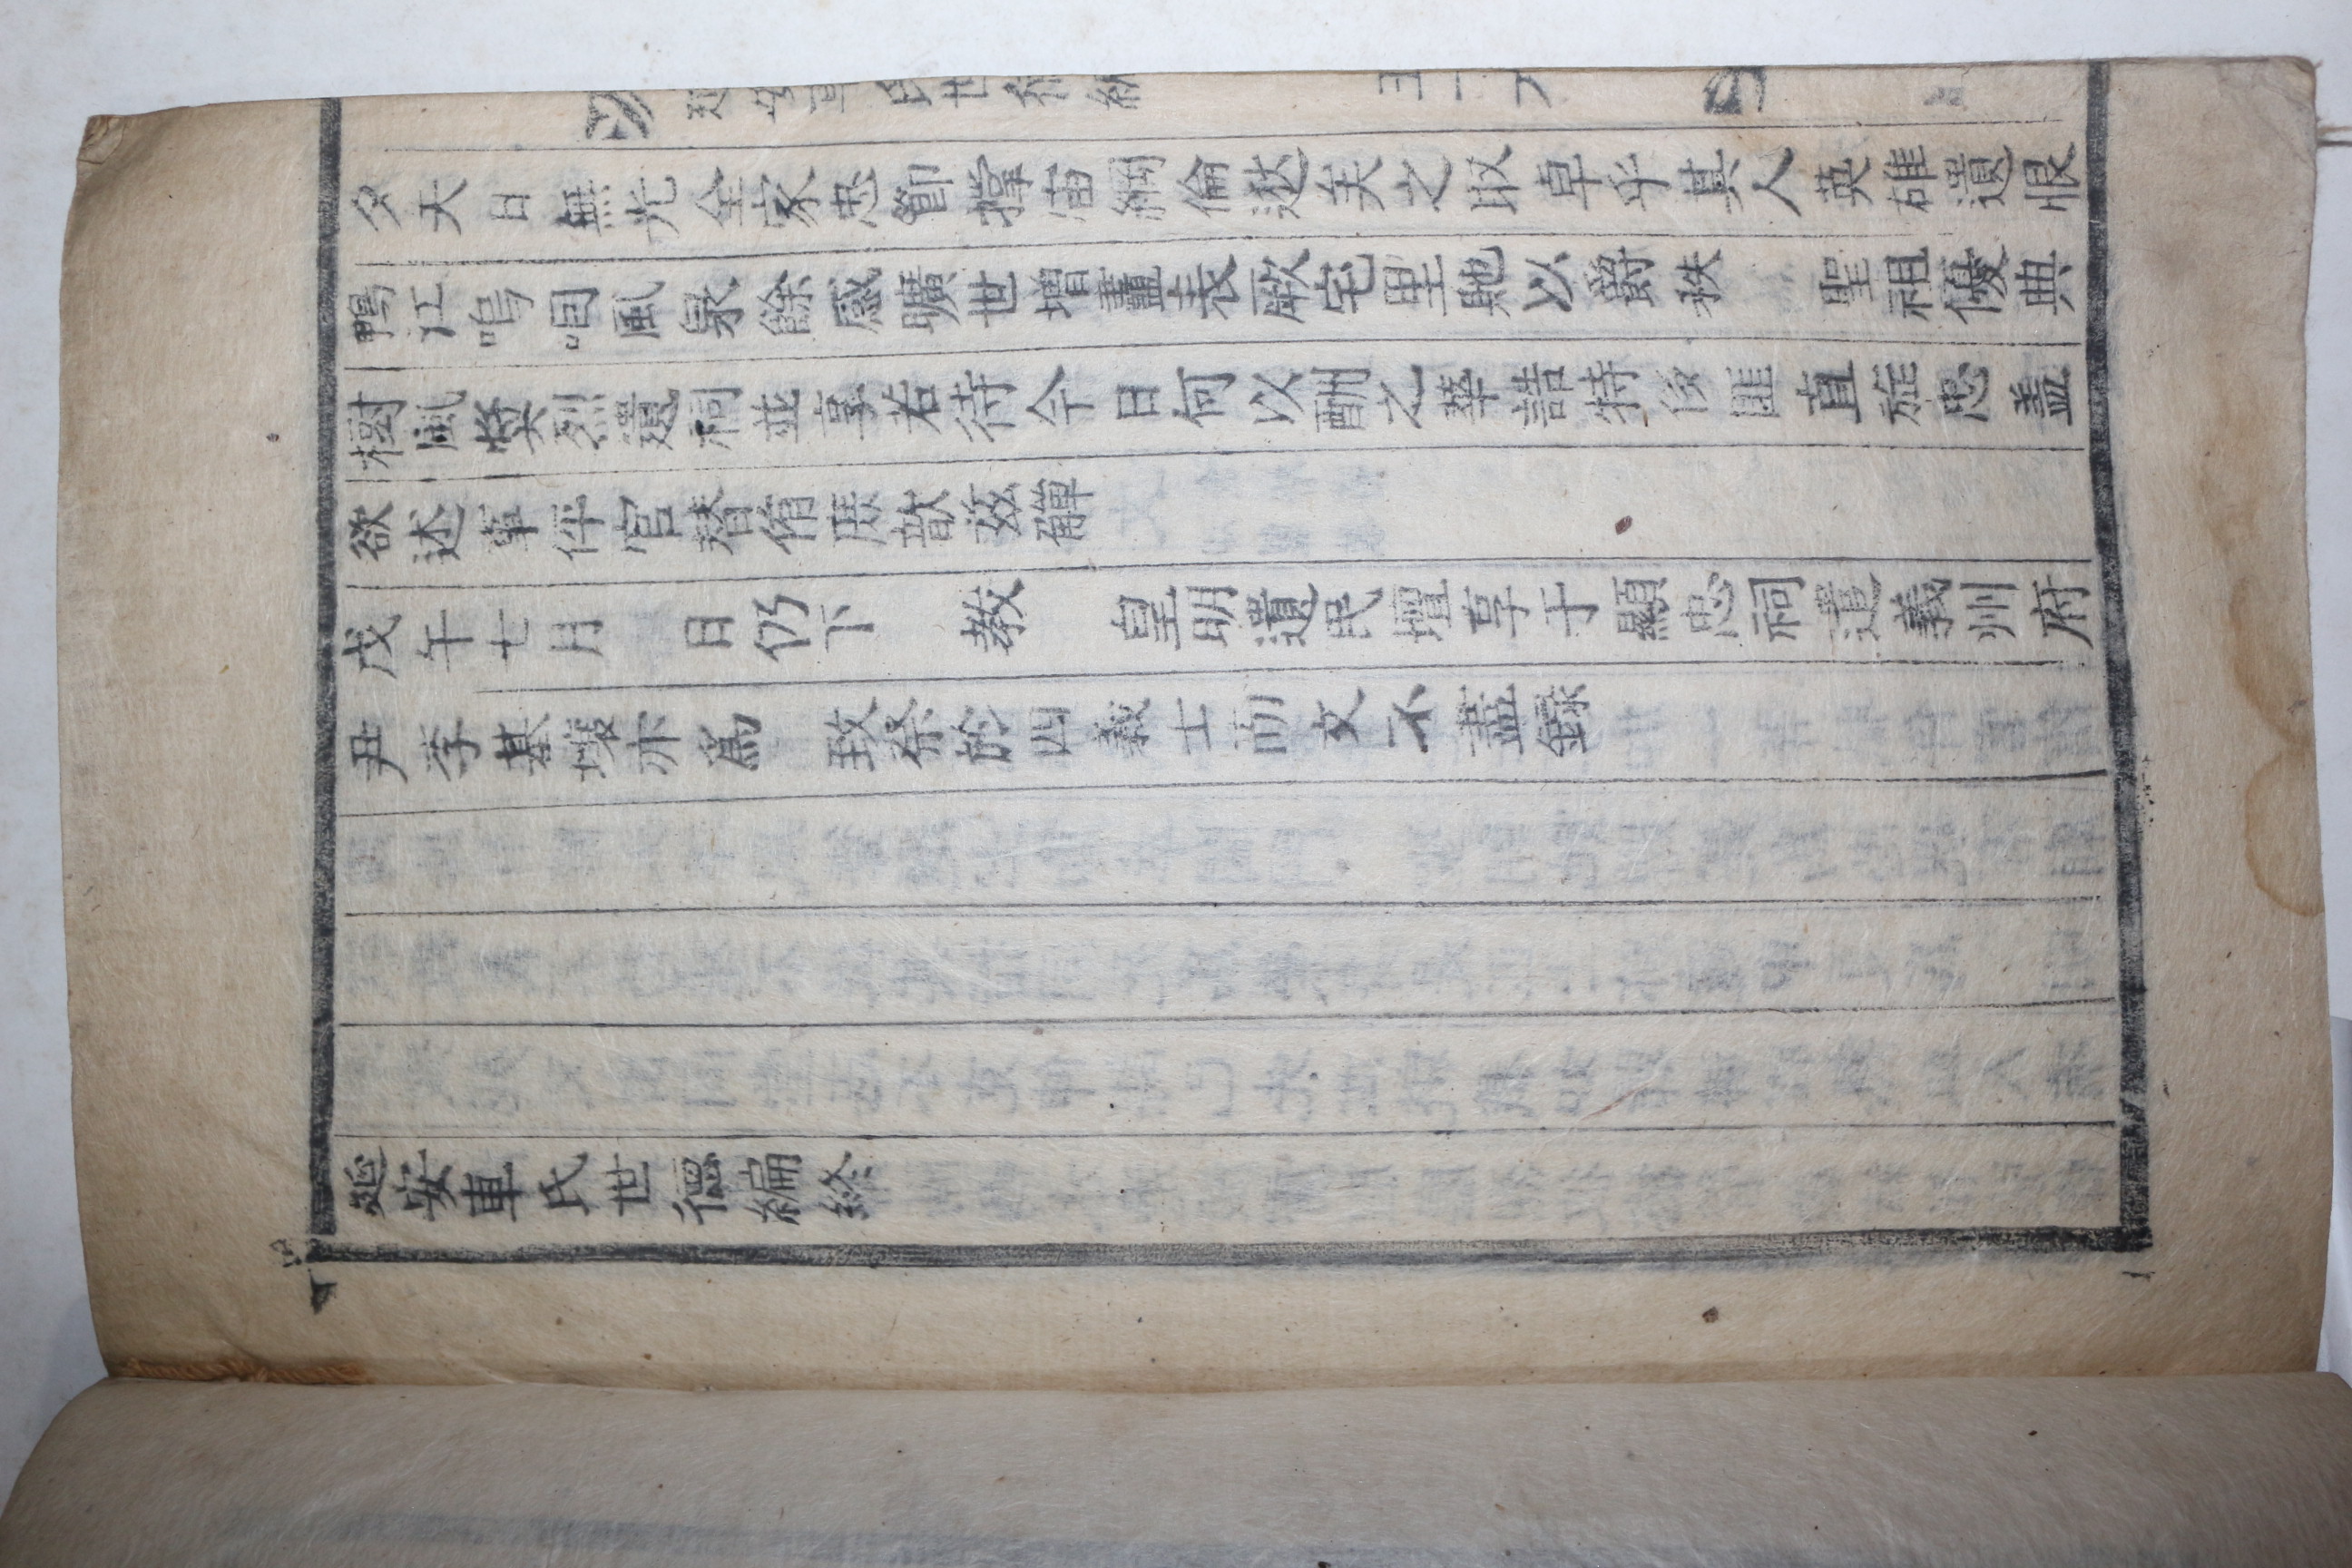 延安車氏世德編
五十六
夕天日無光全家忠節撑宙綱倫逖矣之取卓乎其人英雄遺恨
鴨江嗚咽風泉餘感曠世增盡表厥宅里貤以爵秩 聖祖優典
樹風奬烈遺祠並享若待今日何以酬之華誥特侈匪直旌忠盖
欲述事伻官替侑庶歆玆觶
戊午七月 日仍下 教 皇明遺民壇享于顯忠祠遣義州府
尹李基壤亦爲 致祭於四義士而文不盡錄
延安車氏世德編終